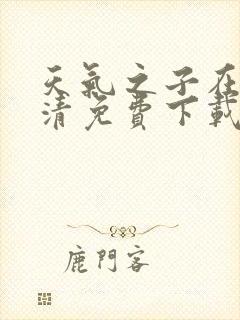 天氣之子在
清免費下載
鹿門客